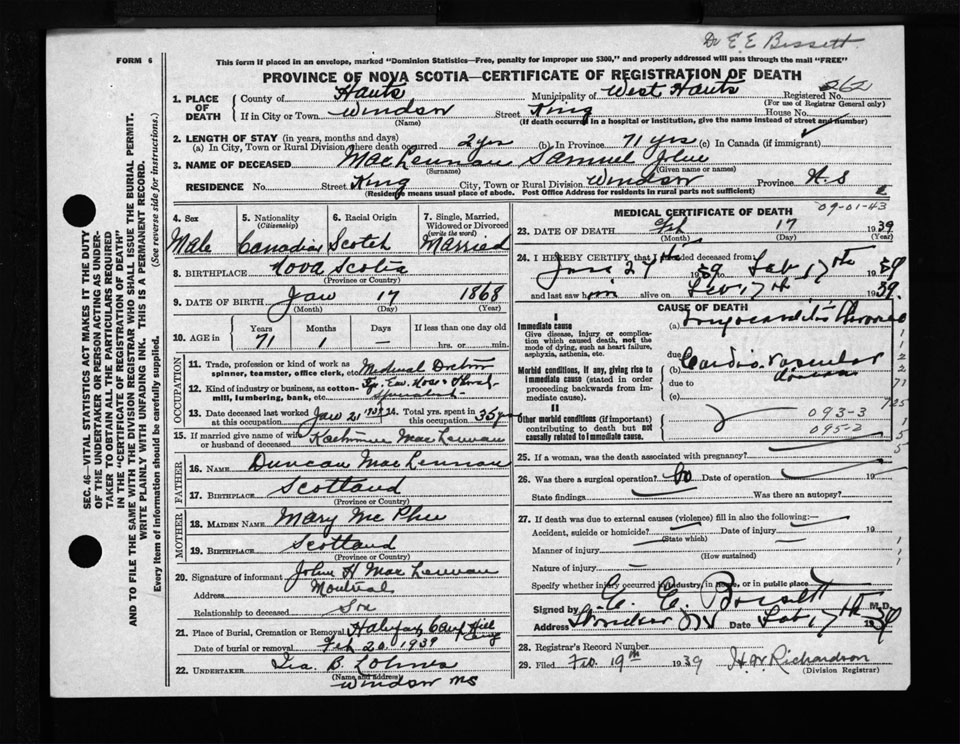 Dr E. E. Bissett
FORM 6
This form if placed in an envelope, marked "Dominion Statistics—Free, penalty for improper use $300," and properly addressed will pass through the mail "FREE"
PROVINCE OF NOVA SCOTIA—CERTIFICATE OF REGISTRATION OF DEATH
262
1. PLACE OF DEATH County of Hants Municipality of West Hants Registered No.
(For use of Registrar General only)
If in City or Town Windsor Street King House No.
(Name) (If death occurred in a hospital or institution, give the name instead of street and number)
2. LENGTH OF STAY (in years, months and days)
(a) In City, Town or Rural Division where death occurred 2 yrs (b) In Province 71 yrs (c) In Canada (if immigrant)
3. NAME OF DECEASED MacLennan Samuel
(Surname) (Given name or names)
RESIDENCE No. Street King City, Town or Rural Division Windsor Province N.S
(Residence means usual place of abode. Post Office Address for residents in rural parts not sufficient)
4. Sex 5. Nationality 6. Racial Origin 7. Single, Married,
(Citizenship) Widowed or Divorced
(write the word)
Male Canadian Scotch Married
8. BIRTHPLACE Nova Scotia
(Province or Country)
9. DATE OF BIRTH Jan 17 1868
(Month) (Day) (Year)
10. AGE in Years Months Days If less than one day old
71 1 — hrs. or min.
OCCUPATION
11. Trade, profession or kind of work as Medical Doctor
spinner, teamster, office clerk, etc.
12. Kind of industry or business, as cotton- Eye, Ear, Nose & Throat
mill, lumbering, bank, etc. Specialist
13. Date deceased last worked Jan 21 1939 14. Total yrs. spent in 35 yrs
at this occupation this occupation
15. If married give name of wife Katherine MacLennan
or husband of deceased
FATHER
16. NAME Duncan MacLennan
17. BIRTHPLACE Scotland
(Province or Country)
MOTHER
18. MAIDEN NAME Mary McPhee
19. BIRTHPLACE Scotland
(Province or Country)
20. Signature of informant John H MacLennan
Address Montreal
Relationship to deceased Son
21. Place of Burial, Cremation or Removal Halifax Camp Hill
Date of burial or removal Feb 20 1939
22. UNDERTAKER Geo. B. Lohnes
(Name and address)
Windsor NS
09-01-43
MEDICAL CERTIFICATE OF DEATH
23. DATE OF DEATH Feb 17 1939
(Month) (Day) (Year)
24. I HEREBY CERTIFY that I attended deceased from
Jan 27th 1939 to Feb 17th 1939
and last saw him alive on Feb 17th 1939.
CAUSE OF DEATH
I
Immediate cause (a) Myocarditis Chronic
Give disease, injury or complica-
tion which caused death, not the
mode of dying, such as heart failure,
asphyxia, asthenia, etc.
due to
(b) Cardio-vascular disease
Morbid conditions, if any, giving rise to
immediate cause (stated in order
proceeding backwards from im-
mediate cause).
due to
(c)
II
Other morbid conditions (if important)
contributing to death but not
causally related to immediate cause.
093-3
095-2
25. If a woman, was the death associated with pregnancy?
26. Was there a surgical operation? No Date of operation
State findings Was there an autopsy?
27. If death was due to external causes (violence) fill in also the following:—
Accident, suicide or homicide? Date of injury 19
(State which)
Manner of injury
(How sustained)
Nature of injury
Specify whether injury occurred in industry, in home, or in public place
Signed by E. E. Bissett M.D.
Address Windsor NS Date Feb 17th 1939
28. Registrar's Record Number
29. Filed Feb 19th 1939 H. W. Richardson
(Division Registrar)
SEC. 46—VITAL STATISTICS ACT MAKES IT THE DUTY
OF THE UNDERTAKER OR PERSON ACTING AS UNDER-
TAKER TO OBTAIN ALL THE PARTICULARS REQUIRED
IN THE "CERTIFICATE OF REGISTRATION OF DEATH"
AND TO FILE THE SAME WITH THE DIVISION REGISTRAR WHO SHALL ISSUE THE BURIAL PERMIT.
WRITE PLAINLY WITH UNFADING INK. THIS IS A PERMANENT RECORD.
Every item of information should be carefully supplied. (See reverse side for instructions.)